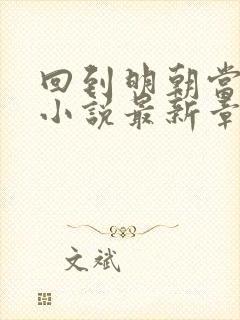 回到明朝当
小说最新章
文斌